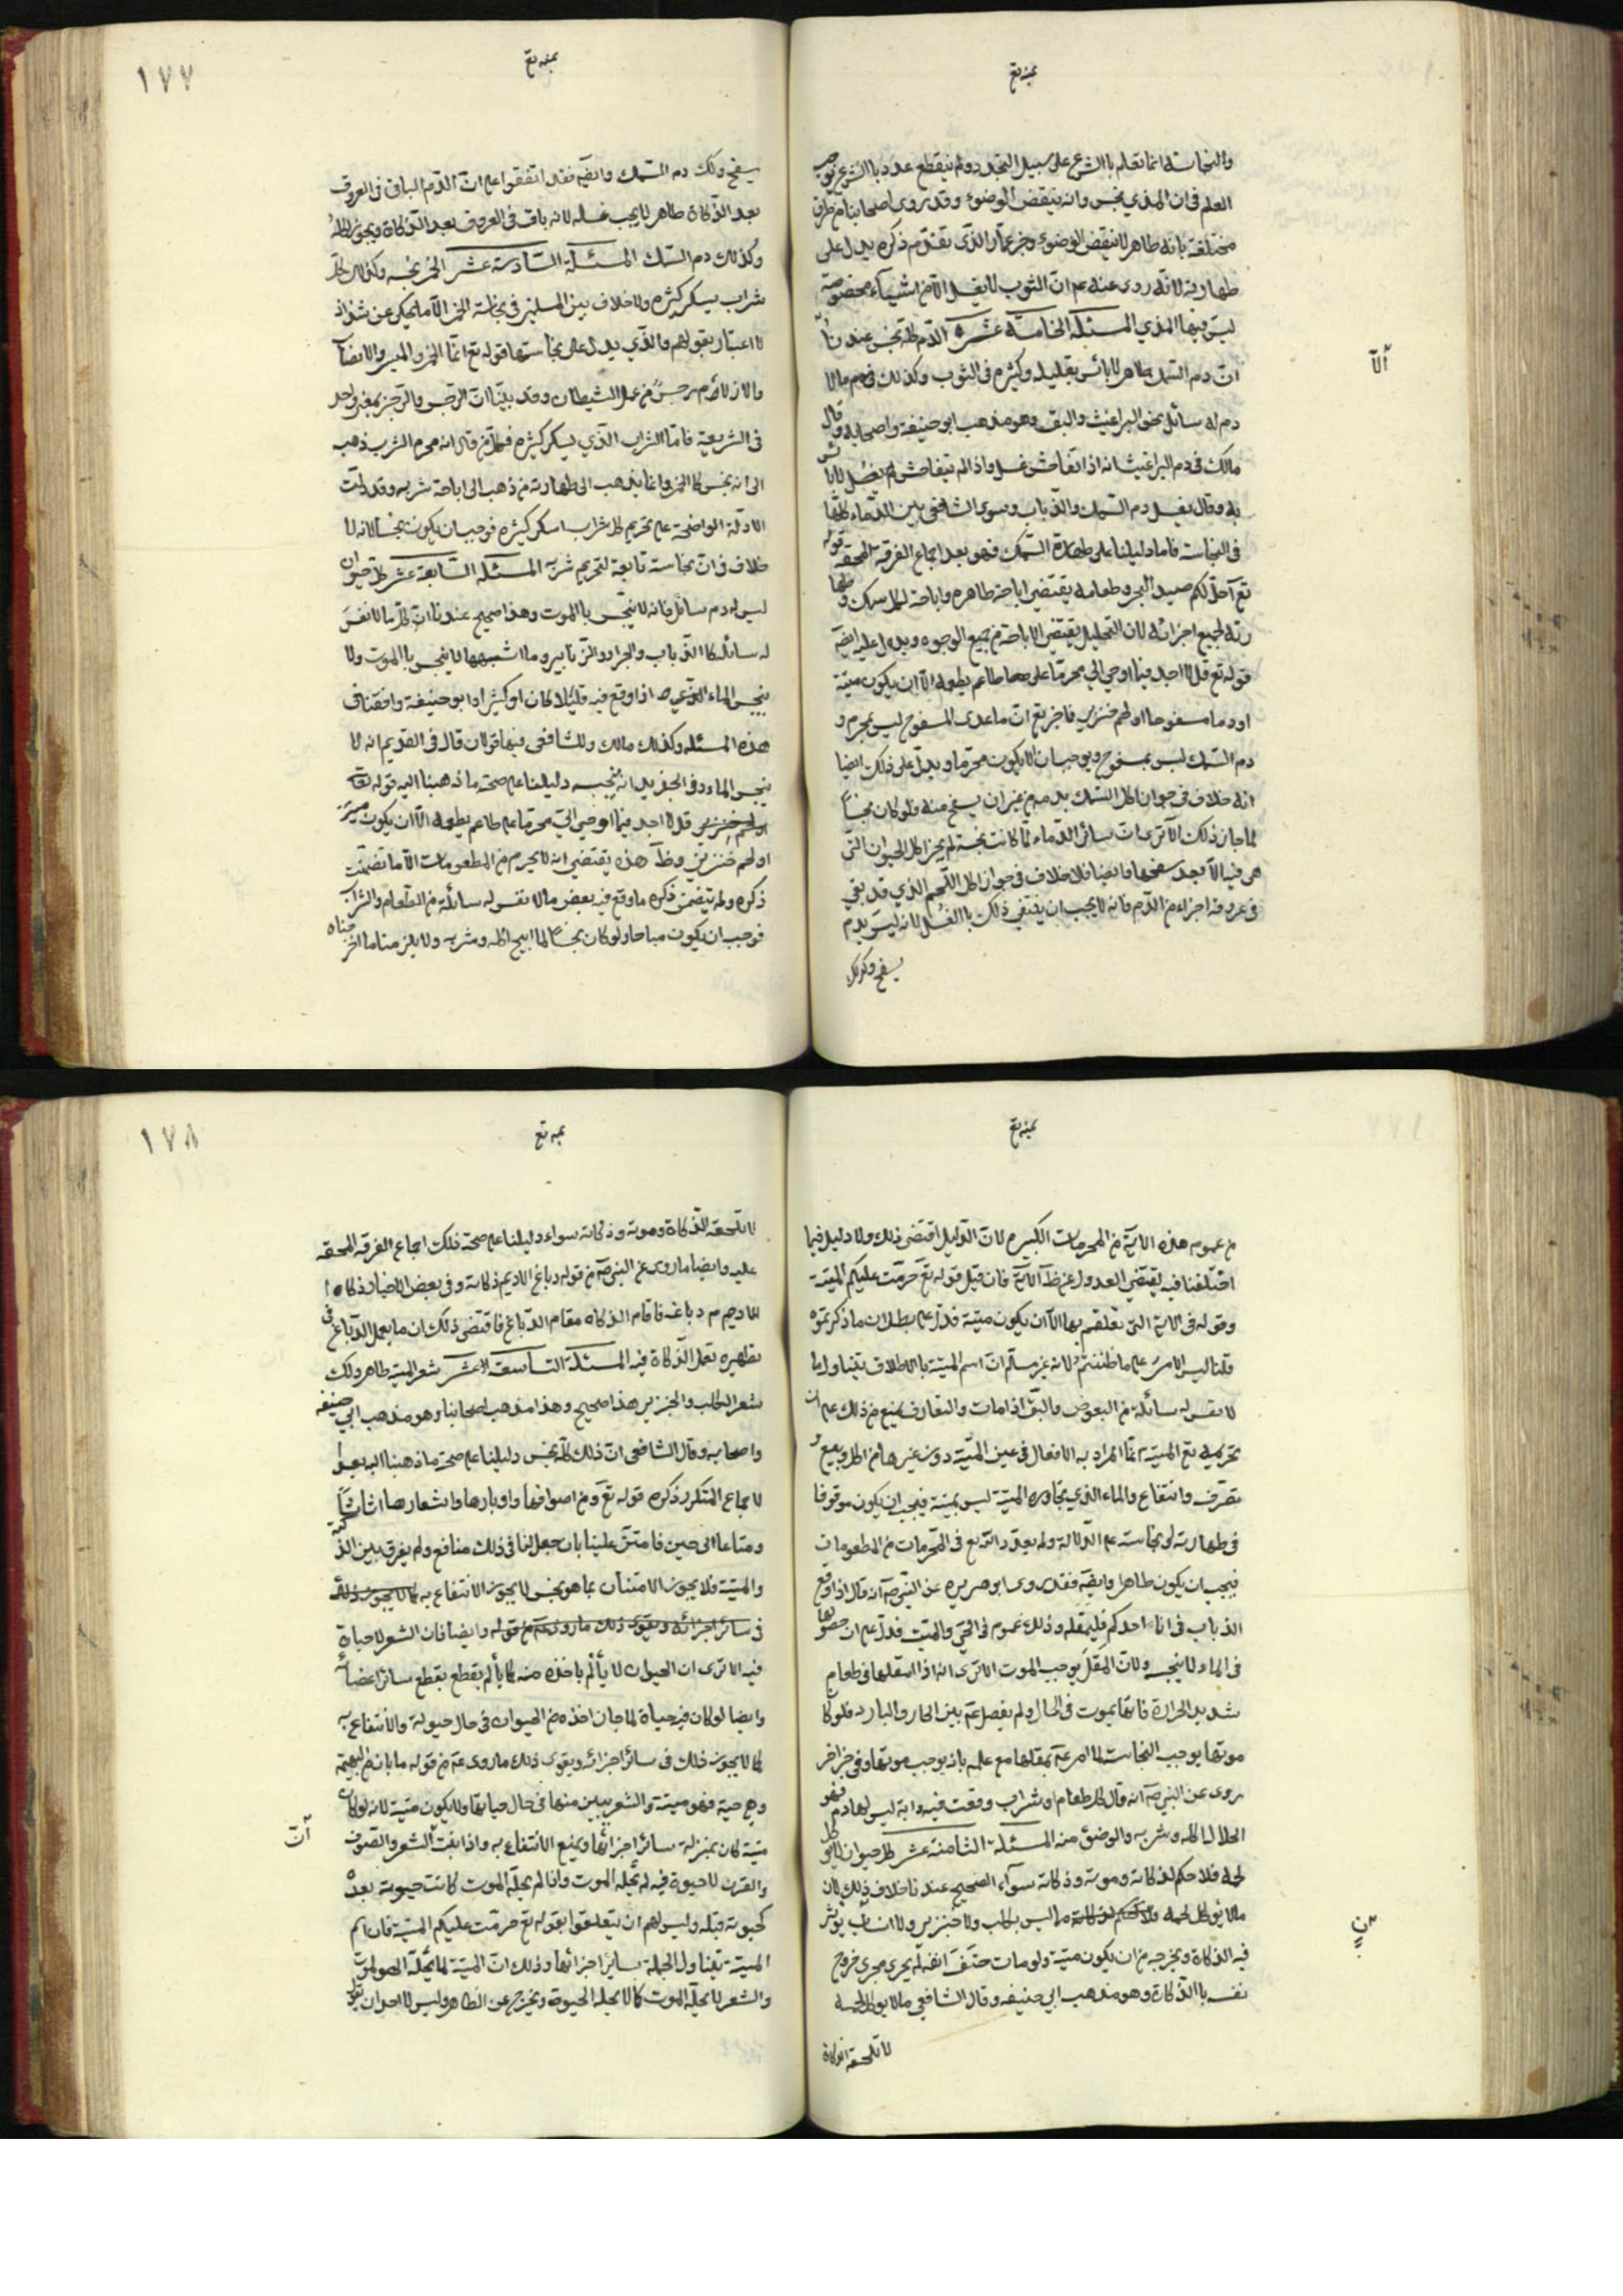 بمنه تع
والنجاسة انما تعلم باالشرع على سبيل التجدد ولم ينقطع عذر باالشرع يوجب
العلم فى ان المذي نجس وانه ينقض الوضوء وقد روى اصحابنا من طرق
مختلفة بانه طاهر لا ينقض الوضوء وخبر عمار الذى تقدم ذكره يدل على
طهارته لانه روى عنه عم ان الثوب لا يغسل الا من اشياء مخصوصة
ليس فيها المذي المسئلة الخامسة عشرة الدم كله نجس عندنا
الاّ
ان دم السمك طاهر لا باس بقليله وكثيره فى الثوب وكذلك دم ما لا
دم له سائل نحو البراغيث والبق وهو مذهب ابو حنيفة واصحابه وقال
مالك فى دم البراغيث انه اذا تفاحش غسل واذا لم يتفاحش لم يغسل لا باس
به وقال يغسل دم السمك والذباب وسوى الشافعى بين الدماء كلها
فى النجاسة فاما دليلنا على طهارة السمك فهو بعد اجماع الفرقة المحقة قوله
تع احل لكم صيد البحر وطعامه يقتضي اباحة طاهره واباحة اكل سمك و
رته لجميع اجزائه لان التحليل يقتضى الاباحة من جميع الوجوه ويدل عليه ايضه
قوله تع قل لا اجد فيما اوحي الي محرما على طاعم يطعمه الا ان يكون ميتة
او دما مسفوحا او لحم خنزير فاخبر تع ان ما عدى المسفوح ليس بمحرم و
دم السمك ليس بمسفوح ويوجب ان لا يكون محرما ويدل على ذلك ايضا
انه خلاف فى جوان اكل السمك بدمه من غير ان يسفح منه فلو كان نجساً
لما جاز ذلك الا ترى ان سائر الدماء لما كانت نجسة لم يجز اكل الحيوان التى
هى فيه الا بعد سفحها وايضا فلا خلاف فى جواز اكل اللحم الذي قد بقي
فى عروقه اجزاء من الدم فانه لا يجب ان ينتفي ذلك باالغسل لانه ليس بدم
يسفح وكذلك
١٧٧
بمنه تع
يسفح وكذلك دم السمك وايضه فقد اتفقوا على ان الدم الباقى فى العروق
بعد الذكاة طاهر لا يجب غسله لانه باق فى العروق بعد الذكاة ويجوز اكله
وكذلك دم السمك المسئلة السادسة عشر الخمر نجسه وكذلك كل
شراب يسكر كثيره ولا خلاف بين المسلمين فى نجاسة الخمر الا ما يحكى عن شذاذ
لا اعتبار بقولهم والذي يدل على نجاستها قوله تع انما الخمر والميسر والانصاب
والازلام رجس من عمل الشيطان وقد بينا ان الرجس والرجز بمعنى واحد
فى الشريعة فاما الشراب الذي يسكر كثيره فكل من قال انه محرم الشرب ذهب
الى انه نجس كالخمر وانما يذهب الى طهارته من ذهب الى اباحة شربه وقد دلت
الادلة الواضحة على تحريم كل شراب اسكر كثيره فوجب ان يكون نجسا لانه لا
خلاف فى ان نجاسة تابعة لتحريم شربه المسئلة السابعة عشر كل حيوان
ليس له دم سائل فانه لا ينجس باالموت وهذا صحيح عندنا ان كل ما لا نفس
له سائلة كاالذباب والجراد والزنابير وما اشبهها لا ينجس باالموت ولا
ينجس الماء اذا وقع فيه قليلا كان او كثيرا وابو حنيفة وافقنا فى
هذه المسئلة وكذلك مالك وللشافعى فيها قولان قال فى القديم انه لا
ينجس الماء وفى الجديد انه ينجسه دليلنا على صحة ما ذهبنا اليه قوله تعه
قل لا اجد فيما اوحى الي محرما على طاعم يطعمه الا ان يكون ميتة
او لحم خنزير وظا هذه يقتضي انه لا يحرم من المطعومات الا ما تضمنت
ذكره ولم يتضمن ذكره ما وقع فيه بعض ما لا نفس له سائلة من الطعام والشراب
فوجب ان يكون مباحا ولو كان نجساً لما ابيح اكله وشربه ولا يلزمنا ما اخرجناه
بمنه تع
من عموم هذه الاية من المحرمات الكثيره لان الدليل اقتضى ذلك ولا دليل فيما
اختلفنا فيه يقتضي العدول عن ظا الاية فان قيل قوله تع حرمت عليكم الميتة
وقوله فى الاية التى تعلقتم بها الا ان يكون ميتة فدل على بطلان ما ذكرتموه
قلنا ليس الامر على ما ظننتم لانه غير مسلم ان اسم الميتة باالاطلاق يتناول ما
لا نفس له سائلة من البعوض والبق اذا مات والتعارف يمنع من ذلك على ان
تحريمه تع الميتة انما المراد به الافعال فى عين الميتة دون غيرها من اكل وبيع و
تصرف وانتفاع والماء الذي تجاوره الميتة ليس بميتة فيجب ان يكون موقوفا
فى طهارته او نجاسته على الدلالة ولم يعد الله تع فى المحرمات من المطعومات
فيجب ان يكون طاهرا وايضه فقد روى ابو هريره عن النبى صه انه قال اذا وقع
الذباب فى اناء احدكم فليمقله وذلك عموم فى الحي والميت فدل على ان حصولها
فى الماء لا ينجسه ولان المقل يوجب الموت الا ترى انه اذا امقلها فى طعام
شديد الحرارة فانها تموت فى الحال ولم يفصل عم بين الحار والبارد فلو كا
موتها يوجب النجاسة لما امر عم بمقلها مع علمه بانه يوجب موتها وفى خبر اخر
روى عن النبى صه انه قال كل طعام او شراب وقعت فيه دابة ليس لها دم فهو
الحلال اكله وشربه والوضوء منه المسئلة الثامنة عشر كل حيوان لا يوكل
لحمه فلا حكم لذكاته وموته وذكاته سواء الصحيح عندنا خلاف ذلك لان
ما لا يوكل لحمه مما ليس بكلب ولا خنزير ولا انسان يوثر
فيه الذكاة ويخرجه من ان يكون ميتة ولو مات حتف انفه لم يجرى مجرى خروج
نفسه باالذكاة وهو مذهب ابي حنيفه وقال الشافعي ما لا يوكل لحمه
لا تلحقه الذكاة
١٧٨
بمنه تع
لا تلحقه الذكاة وموته وذكاته سواء دليلنا على صحة ذلك اجماع الفرقه المحقه
عليه وايضا ما روى عن النبى صه من قوله دباغ الاديم ذكاته وفى بعض الاخبار ذكاه ا
الاديم دباغه فاقام الذكاه مقام الدباغ فاقتضى ذلك ان ما يعمل الدباغ فى
تطهيره تعمل الذكاة فيه المسئلة التاسعة عشر شعر الميتة طاهر وكذلك
شعر الكلب والخنزير هذا صحيح وهذا مذهب اصحابنا وهو مذهب ابي حنيفه
واصحابه وقال الشافعى ان ذلك كله نجس دليلنا على صحة ما ذهبنا اليه بعد
لاجماع المتكرر ذكره قوله تع ومن اصوافها واوبارها واشعارها اثاثاً
ومتاعا الى حين فامتن علينا بان جعل لنا فى ذلك منافع ولم يفرق بين الذكية
والميتة فلا يجوز الامتنان بما هو نجس لا يجوز الانتفاع به كما لا يجوز ذلك
فى سائر اجزائه ويقوى ذلك ما روى عم من قوله وايضا فان الشعر لا حياة
فيه الا ترى ان الحيوان لا يألم باخذه منه كما يألم بقطع سائر اعضائه
وايضا لو كان فيه حياة لما جاز اخذه من الحيوان فى حال حيوته والانتفاع به
كما لا يجوز ذلك فى سائر اجزائه ويقوى ذلك ما روى عم من قوله ما بان من البهيمة
وهى حية فهو ميتة والشعر يبين منها فى حال حياتها ولا يكون ميتة لانه لو كان
انّ
ميتة كان بمنزلة سائر اجزائها ويمنع الانتفاع به واذا ثبت الشعر والصوف
والقرن لا حيوة فيه لم يحله الموت واذا لم يحله الموت كانت حيوته بعده
كحيوته قبله وليس لهم ان يتعلقوا بقوله تع حرمت عليكم الميتة فان اسم
الميتة يتناول الجملة سايز اجزائها وذلك ان الميتة لما يحله الموت
والشعر لا يحله الموت كما لا يحله الحيوة ويخرج عن الظاهر وليس لاحد ان يقول